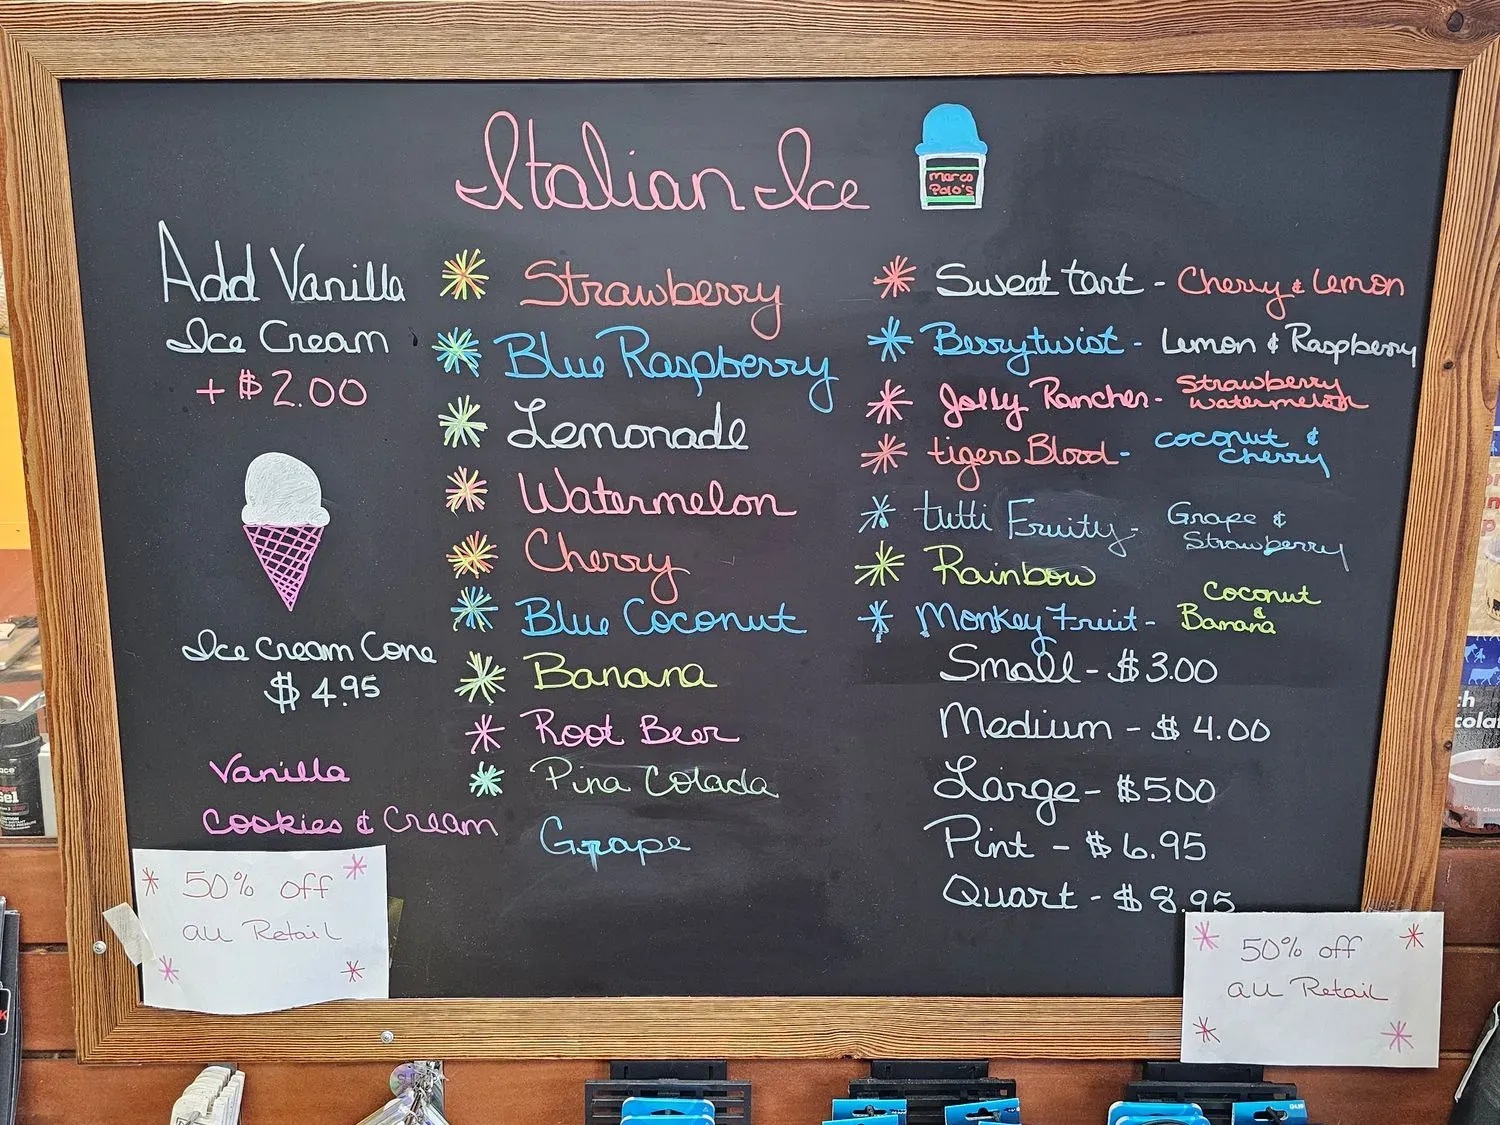 Italian Ice
marco
Polo's
Add Vanilla
Ice Cream
+ $2.00
Ice Cream Cone
$4.95
Vanilla
Cookies & Cream
Strawberry
Blue Raspberry
Lemonade
Watermelon
Cherry
Blue Coconut
Banana
Root Beer
Pina Colada
Grape
Sweet tart - Cherry & Lemon
Berrytwist - Lemon & Raspberry
Jolly Rancher - Strawberry
watermelon
tigers Blood - coconut &
cherry
tutti Fruity - Grape &
Strawberry
Rainbow
Monkey Fruit - Coconut
&
Banana
Small - $3.00
Medium - $4.00
Large - $5.00
Pint - $6.95
Quart - $8.95
50% off
all Retail
50% off
all Retail